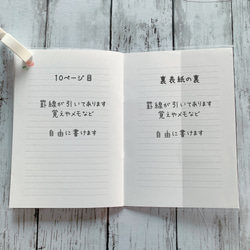 10ページ目
罫線が引いてあります
覚えやメモなど
自由に書けます
裏表紙の裏
罫線が引いてあります
覚えやメモなど
自由に書けます